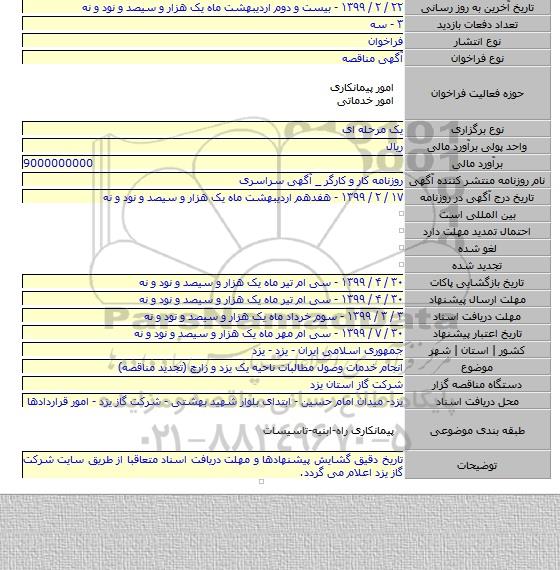 تاریخ آخرین به روز رسانی ۲۲ / ۲ / ۱۳۹۹ - بیست و دوم اردیبهشت ماه یک هزار و سیصد و نود و نه
تعداد دفعات بازدید ۳ - سه
نوع انتشار فراخوان
نوع فراخوان آگهی مناقصه
حوزه فعالیت فراخوان امور پیمانکاری
امور خدماتی
نوع برگزاری یک مرحله ای
واحد پولی برآورد مالی ریال
برآورد مالی 9000000000
نام روزنامه منتشر کننده آگهی روزنامه کار و کارگر _ آگهی سراسری
تاریخ درج آگهی در روزنامه ۱۷ / ۲ / ۱۳۹۹ - هفدهم اردیبهشت ماه یک هزار و سیصد و نود و نه
بین المللی است
احتمال تمدید مهلت دارد
لغو شده
تجدید شده
تاریخ بازگشایی پاکات ۳۰ / ۴ / ۱۳۹۹ - سی ام تیر ماه یک هزار و سیصد و نود و نه
مهلت ارسال پیشنهاد ۳۰ / ۴ / ۱۳۹۹ - سی ام تیر ماه یک هزار و سیصد و نود و نه
مهلت دریافت اسناد ۳ / ۳ / ۱۳۹۹ - سوم خرداد ماه یک هزار و سیصد و نود و نه
تاریخ اعتبار پیشنهاد ۳۰ / ۷ / ۱۳۹۹ - سی ام مهر ماه یک هزار و سیصد و نود و نه
کشور | استان | شهر جمهوری اسلامی ایران - یزد - یزد
موضوع انجام خدمات وصول مطالبات ناحیه یک یزد و زارچ (تجدید مناقصه)
دستگاه مناقصه گزار شرکت گاز استان یزد
محل دریافت اسناد یزد- میدان امام حسین - ابتدای بلوار شهید بهشتی - شرکت گاز یزد - امور قراردادها
طبقه بندی موضوعی پیمانکاری راه-ابنیه-تاسیسات
توضیحات تاریخ دقیق گشایش پیشنهادها و مهلت دریافت اسناد متعاقبا از طریق سایت شرکت
گاز یزد اعلام می گردد.
ParsNamadData
۰۲۱-۸۸۳۴۹۶۷۰-۵